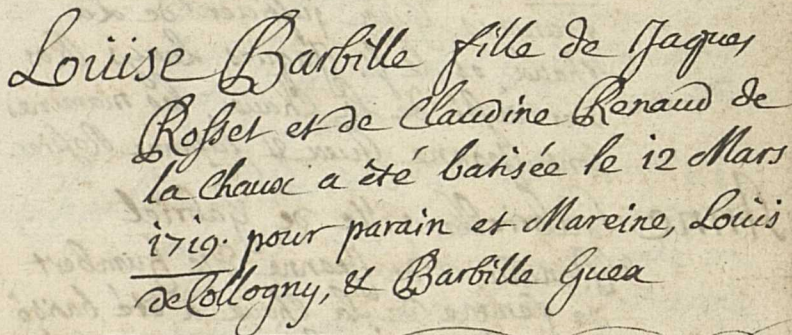 Loüise Barbille fille de Jaques
Rosset et de Claudine Renaud de
la Chaux a été batisée le 12 Mars
1719. pour parain et Mareine, Loüis
de Collogny, & Barbille Guex